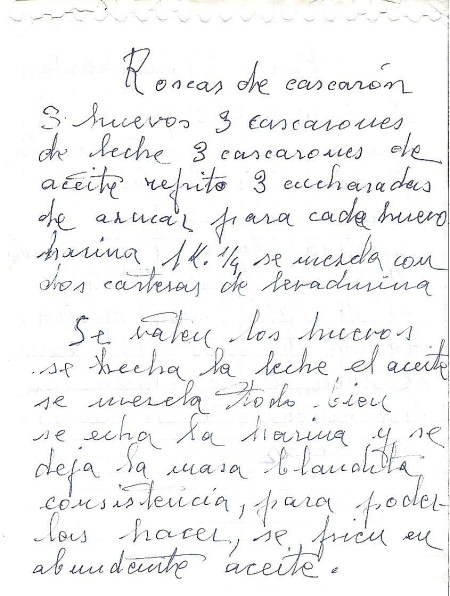 Roscas de cascarón
3 huevos 3 cascarones
de leche 3 cascarones de
aceite repito 3 cucharadas
de azucar para cada huevo
harina 1K. 1/4 se mezcla con
dos carteras de levadurina
Se vaten los huevos
se hecha la leche el aceite
se mezcla todo bien
se echa la harina y se
deja la masa blandita
consistencia, para poder
las hacer, se frien en
abundante aceite.